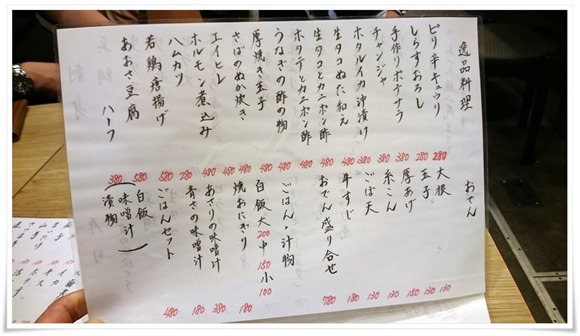 逸品料理
ピリ辛キュウリ 280
しらすおろし 280
手作りポテサラ 380
チャンジャ 380
ホタルイカ沖漬け 380
生タコぬた和え 480
生タコとカニポン酢 480
ホタテとカニポン酢 480
うなぎの酢の物 480
厚焼き玉子 480
さばのぬか炊き 480
エイヒレ 480
ホルモン煮込み 480
ハムカツ 280
若鶏唐揚げ 580
あおさ豆腐 580
ハーフ 380
おでん
大根 130
玉子 130
厚あげ 150
糸こん 130
ごぼ天 130
牛すじ 180
おでん盛り合せ 780
ごはん・汁物
白飯 大200 中150 小100
焼おにぎり 180
あさりの味噌汁 380
青さの味噌汁 180
ごはんセット 480
(白飯
味噌汁
漬物)